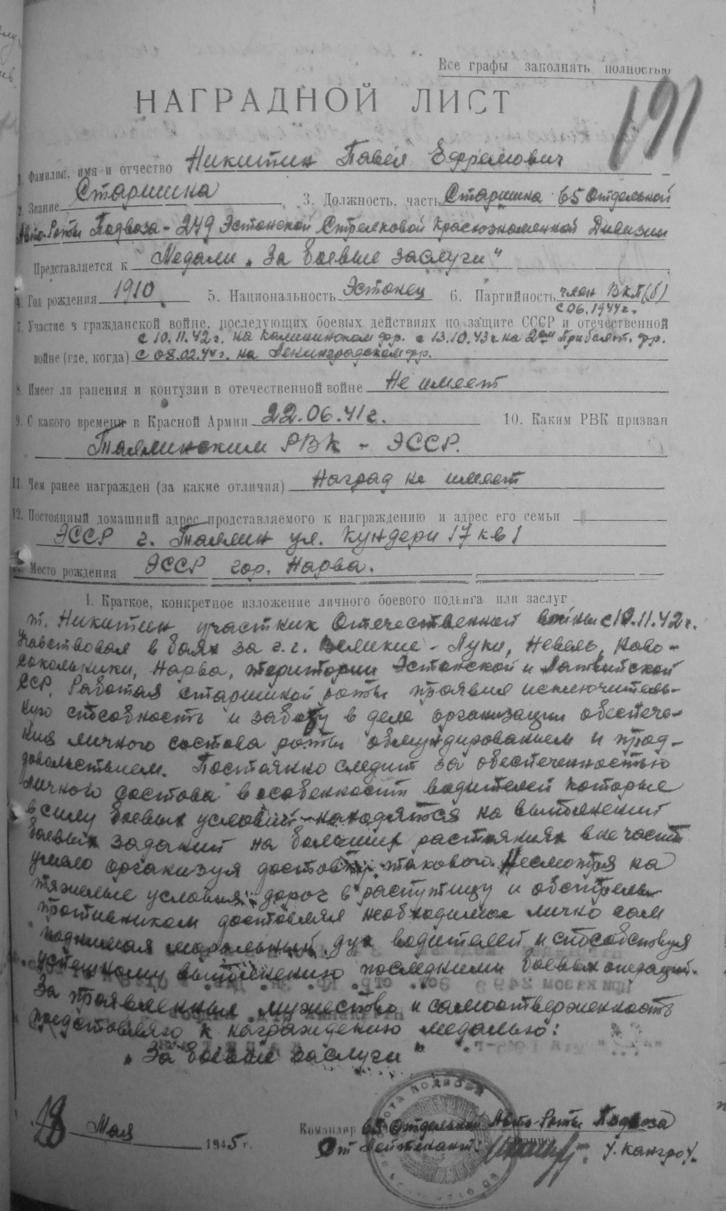 Все графы заполнять полностью
НАГРАДНОЙ ЛИСТ
191
1. Фамилия, имя и отчество Никитин Павел Ефремович
2. Звание Старшина 3. Должность, часть Старшина 65 Отдельной
Авто-Роты Подвоза - 249 Эстонской Стрелковой Краснознаменной Дивизии
Представляется к Медали „За боевые заслуги"
4. Год рождения 1910 5. Национальность Эстонец 6. Партийность член ВКП(б)
с 06.1944г.
7. Участие в гражданской войне, последующих боевых действиях по защите СССР и отечественной
с 10.11.42г. на Калининском фр. с 13.10.43г. на 2ом Прибалт. фр.
войне (где, когда) с 08.02.44г. на Ленинградском фр.
8. Имеет ли ранения и контузии в отечественной войне Не имеет
9. С какого времени в Красной Армии 22.06.41г. 10. Каким РВК призван
Таллинским РВК - ЭССР.
11. Чем ранее награжден (за какие отличия) Наград не имеет
12. Постоянный домашний адрес представляемого к награждению и адрес его семьи
ЭССР г. Таллин ул. Кундери 17 кв 1
Место рождения ЭССР гор. Нарва.
1. Краткое, конкретное изложение личного боевого подвига или заслуг
т. Никитин участник Отечественной войны с 10.11.42г.
Учавствовал в боях за г.г. Великие-Луки, Невель, Ново-
сокольники, Нарва, територии Эстонской и Латвийской
ССР. Работая старшиной роты проявил исключитель-
ную способность и заботу в деле организации обеспече-
ния личного состава роты обмундированием и прод-
довольствием. Постоянно следит за обеспеченностью
личного состава в особенности водителей которые
в силу боевых условий находятся на выполнении
боевых заданий на больших растояниях в не части
умело организуя доставку такового. Несмотря на
тяжелые условия дорог в распутицу и обстрелы
противником доставлял необходимое лично сам
поднимая моральный дух водителей и способствуя
успешному выполнению последними боевых операций.
За проявленные мужество и самоотверженность
представляю к награждению медалью:
„За боевые заслуги"
28 Мая 1945г.
Командир 65 Отдельной Авто-Роты Подвоза
Ст. Лейтенант: /. Кангро /.